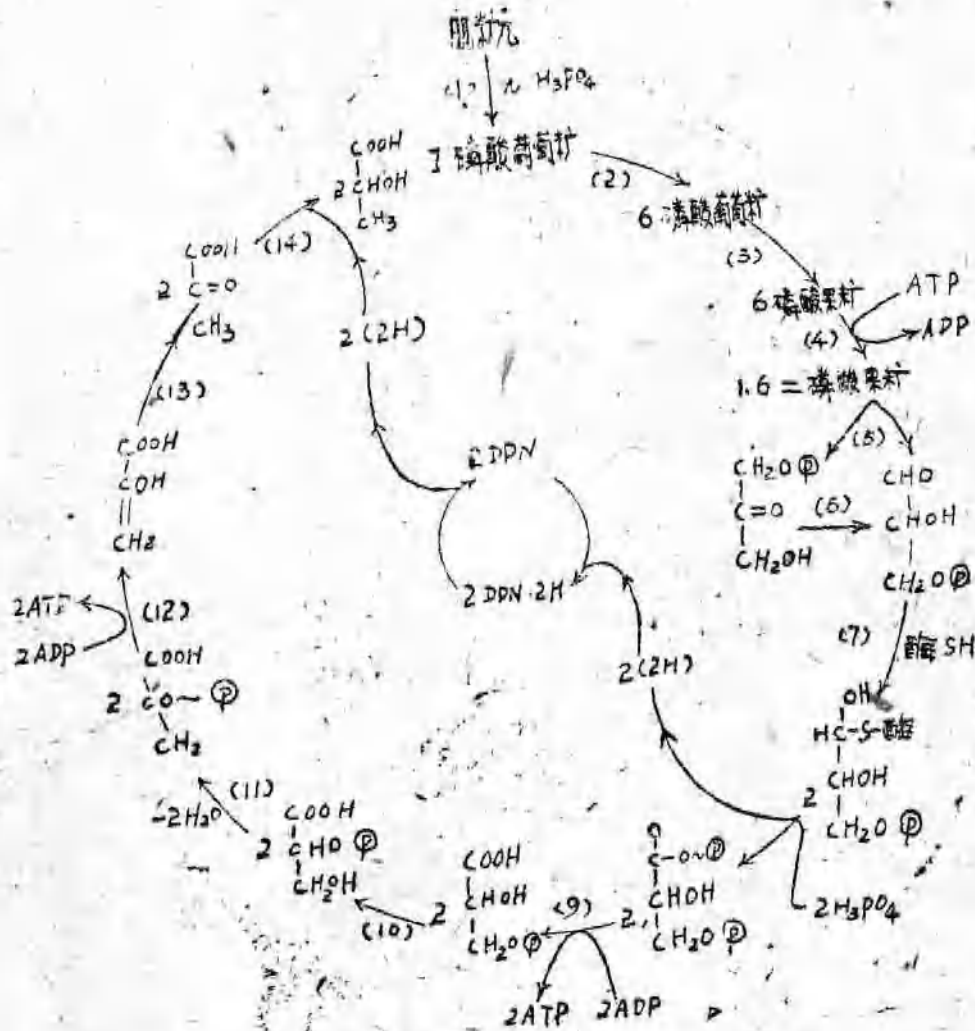 (1) H₃PO₄
1 磷酸葡萄粁
(2)
6 磷酸葡萄粁
(3)
6 磷酸果粁
ATP
(4)
ADP
1.6 二磷酸果粁
(5)
CH₂O Ⓟ
C=O
CH₂OH
(6)
CHO
CHOH
CH₂O Ⓟ
(7) 酶 SH
OH
HC-S-酶
2 CHOH
CH₂O Ⓟ
2H₃PO₄
2(2H)
O
C-O~Ⓟ
2 CHOH
CH₂O Ⓟ
(9)
2ATP 2ADP
COOH
2 CHOH
CH₂O Ⓟ
(10)
COOH
2 CHO Ⓟ
CH₂OH
(11)
-2H₂O
COOH
2 CO~Ⓟ
CH₂
(12)
2ATP
2ADP
COOH
COH
CH₂
(13)
COOH
2 C=O
CH₃
(14)
COOH
2 CHOH
CH₃
2(2H)
2DPN
2DPN·2H